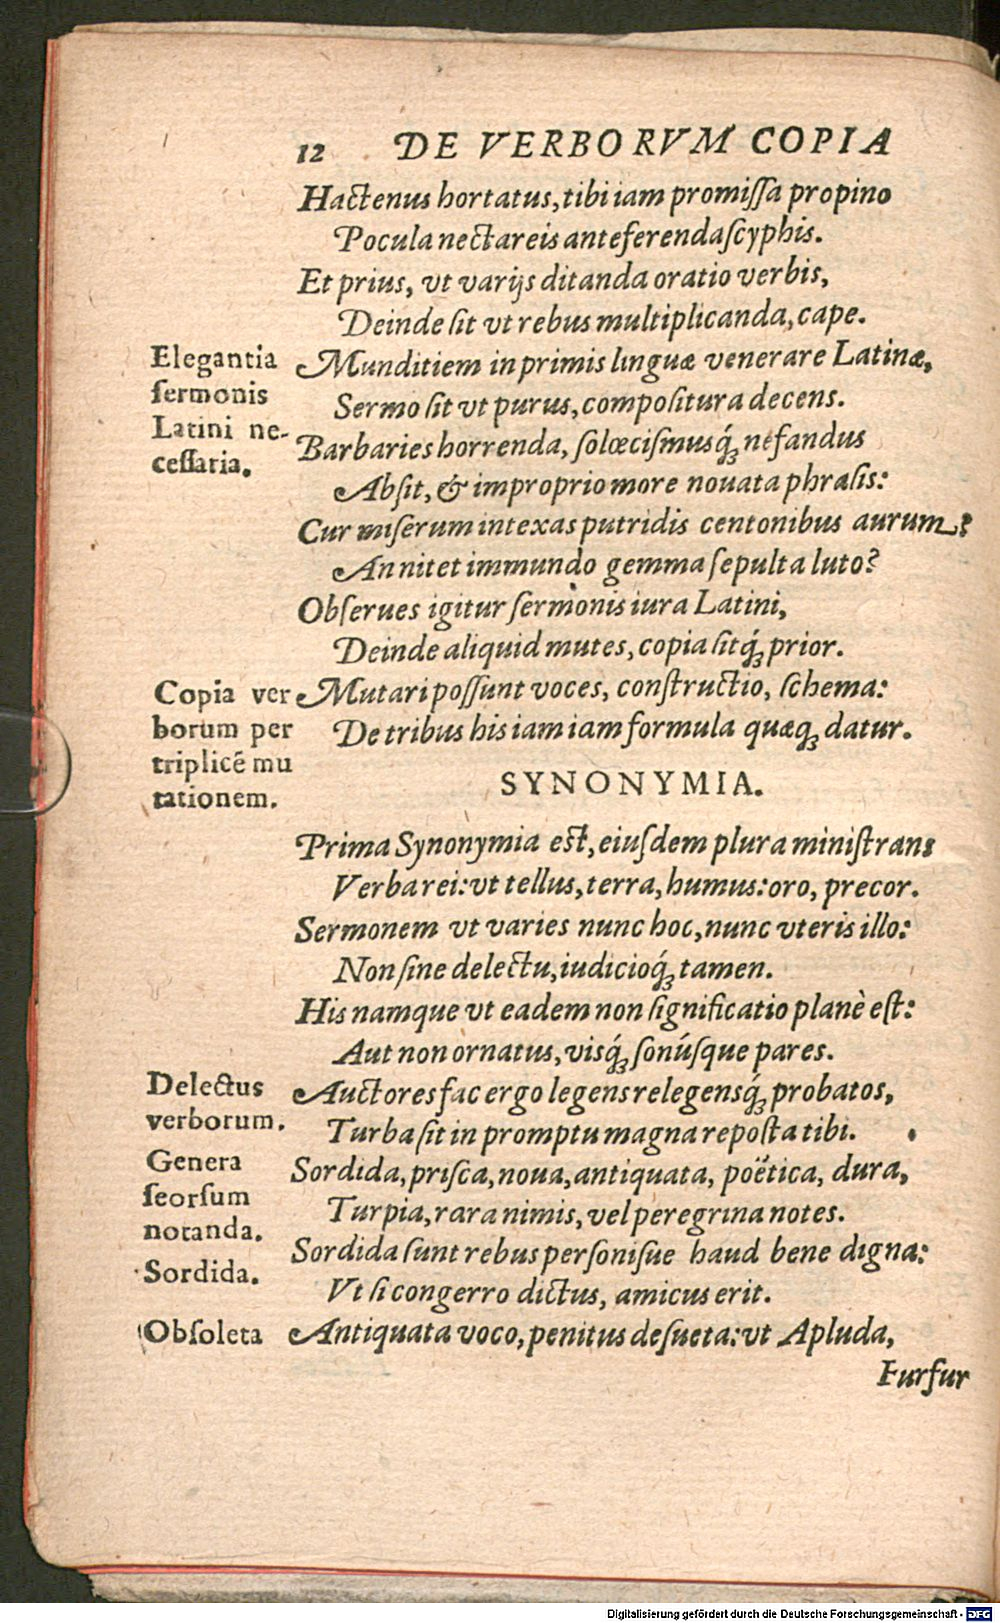 12 DE VERBORVM COPIA
Hactenus hortatus, tibi iam promiſſa propino
Pocula nectareis anteferenda ſcyphis.
Et prius, vt varijs ditanda oratio verbis,
Deinde ſit vt rebus multiplicanda, cape.
Elegantia
ſermonis
Latini ne-
ceſſaria.
Munditiem in primis linguæ venerare Latinæ,
Sermo ſit vt purus, compoſitura decens.
Barbaries horrenda, ſolœciſmusq́; nefandus
Abſit, & improprio more nouata phraſis:
Cur miſerum intexas putridis centonibus aurum?
An nitet immundo gemma ſepulta luto?
Obſerues igitur ſermonis iura Latini,
Deinde aliquid mutes, copia ſitq́; prior.
Copia ver
borum per
triplicē mu
tationem.
Mutari poſſunt voces, conſtructio, ſchema:
De tribus his iam iam formula quæq; datur.
SYNONYMIA.
Prima Synonymia eſt, eiuſdem plura miniſtrans
Verba rei: vt tellus, terra, humus: oro, precor.
Sermonem vt varies nunc hoc, nunc vteris illo:
Non ſine delectu, iudicioq́; tamen.
His namque vt eadem non ſignificatio planè eſt:
Aut non ornatus, visq́; ſonúſque pares.
Delectus
verborum.
Auctores fac ergo legens relegensq́; probatos,
Turba ſit in promptu magna repoſta tibi.
Genera
ſeorſum
notanda.
Sordida, priſca, noua, antiquata, poëtica, dura,
Turpia, rara nimis, vel peregrina notes.
Sordida.
Sordida ſunt rebus perſoniſue haud bene digna:
Vt ſi congerro dictus, amicus erit.
Obſoleta
Antiquata voco, penitus deſueta: vt Apluda,
Furfur
Digitalisierung gefördert durch die Deutsche Forschungsgemeinschaft - DFG